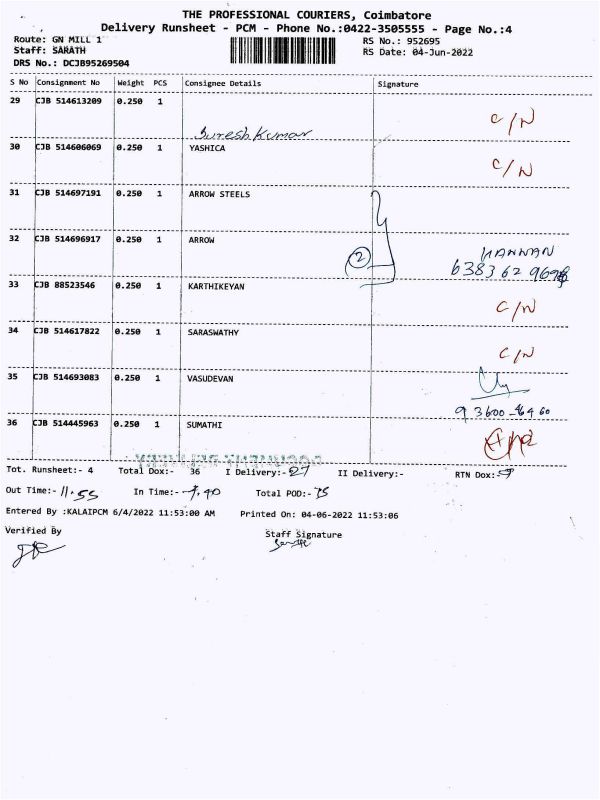 THE PROFESSIONAL COURIERS, Coimbatore
Delivery Runsheet - PCM - Phone No.:0422-3505555 - Page No.:4
Route: GN MILL 1 RS No.: 952695
Staff: SARATH RS Date: 04-Jun-2022
DRS No.: DCJB95269504
S No Consignment No Weight PCS Consignee Details Signature
29 CJB 514613209 0.250 1 C/N
Suresh Kumar
30 CJB 514606069 0.250 1 YASHICA C/N
31 CJB 514697191 0.250 1 ARROW STEELS
32 CJB 514696917 0.250 1 ARROW 2 KANNAN
6383 62
33 CJB 88523546 0.250 1 KARTHIKEYAN C/N
34 CJB 514617822 0.250 1 SARASWATHY C/N
35 CJB 514693083 0.250 1 VASUDEVAN
36 CJB 514445963 0.250 1 SUMATHI
Tot. Runsheet:- 4 Total Dox:- 36 I Delivery:- 27 II Delivery:- RTN Dox:-
Out Time:- 11.55 In Time:- Total POD:-
Entered By :KALAIPCM 6/4/2022 11:53:00 AM Printed On: 04-06-2022 11:53:06
Verified By Staff Signature